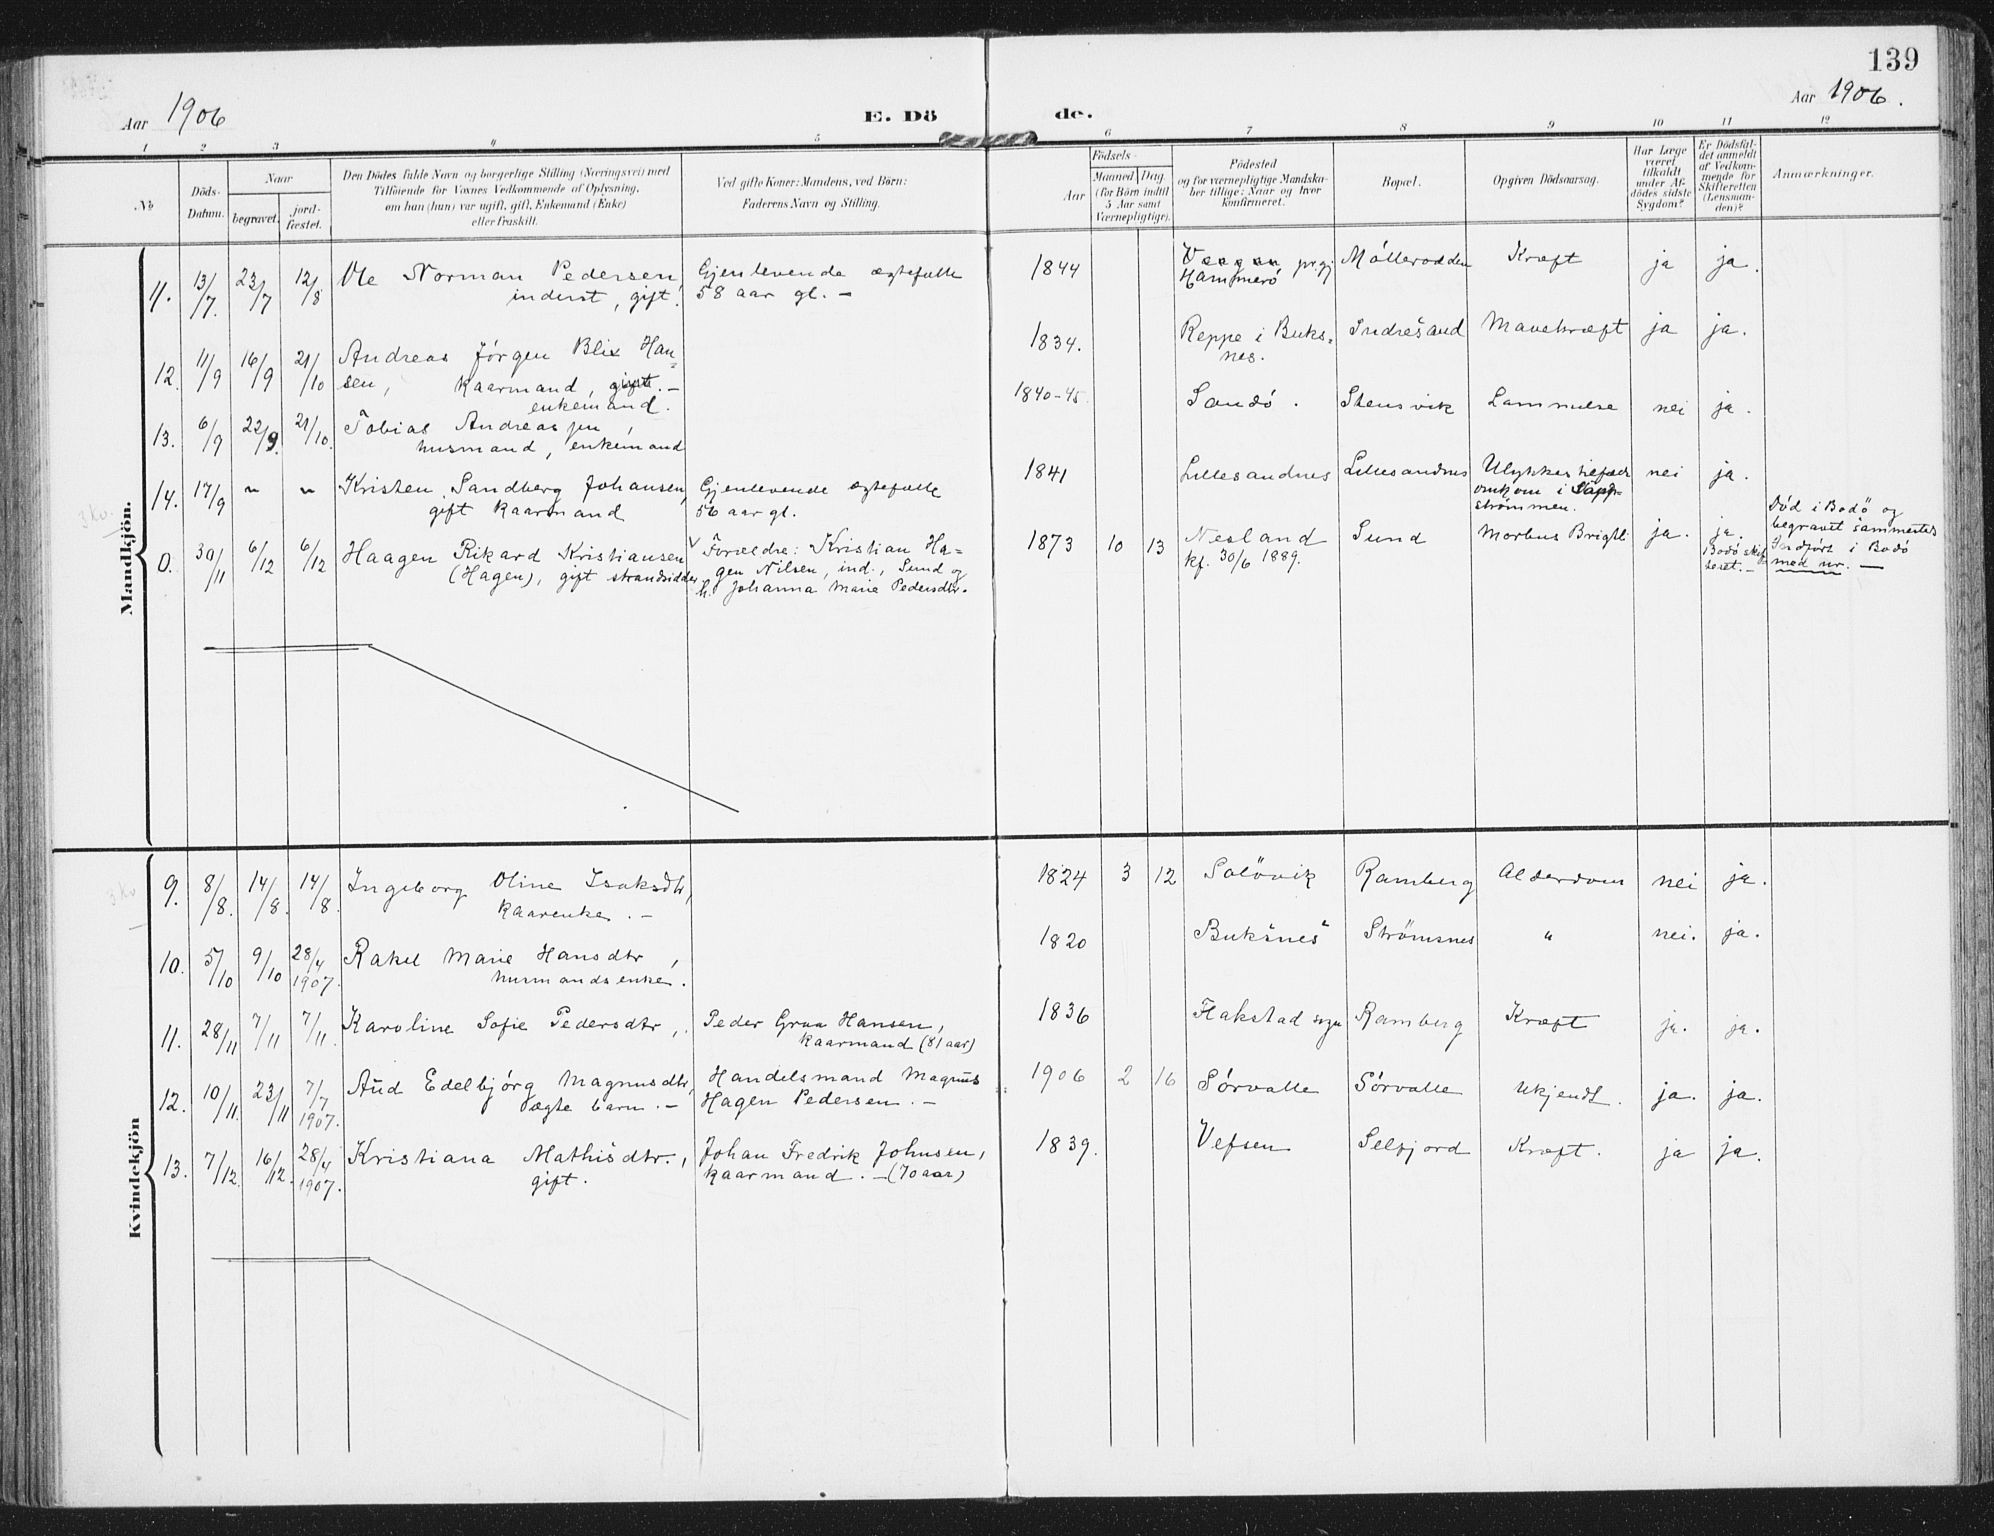 139
Aar 1906
E. Dö
de.
Aar 1906.
1 2 3 4 5 6 7 8 9 10 11 12
No
Döds-
Datum.
Naar
begravet.
jord-
fæstet.
Den Dödes fulde Navn og borgerlige Stilling (Næringsvei) med
Tilföiende for Voxnes Vedkommende af Oplysning,
om han (hun) var ugift, gift, Enkemand (Enke)
eller fraskilt.
Ved gifte Koner: Mandens, ved Börn:
Faderens Navn og Stilling.
Födsels-
Aar
Maaned Dag
(for Börn indtil
5 Aar samt
Værnepligtige).
Födested
og for værnepligtige Mandska-
ber tillige: Naar og hvor
konfirmeret.
Bopæl.
Opgiven Dödsaarsag.
Har Læge
været
tilkaldt
under Af-
dödes sidste
Sygdom?
Er Dödsfal-
det anmeldt
af Vedkom-
mende for
Skifteretten
(Lensman-
den)?
Anmærkninger.
Mandkjön.
11. 13/7. 23/7 12/8 Ole Norman Pedersen,
inderst, gift.
Gjenlevende ægtefælle
58 aar gl. –
1844 prgj
Hammerö
Möllerodden Kræft ja ja.
12. 11/9 16/9 21/10 Andreas Jörgen Blix Han-
sen, kaarmand, gift. –
enkemand.
1834. Reppe i Buks-
nes.
Indresand Mavekræft ja ja.
13. 6/9 22/9. 21/10. Tobias Andreassen,
husmand, enkemand
1840-45. Sandö. Stensvik Lammelse nei ja.
14. 17/9 " " Kristen Sandberg Johansen,
gift kaarmand
Gjenlevende ægtefælle
56 aar gl.
1841 Lillesandnes Lillesandnes Ulykkestilfælde
omkom i
strömmen.
nei ja.
0. 30/11 6/12 6/12 Haagen Rikard Kristiansen
(Hagen), gift strandsidder
Forældre: Kristian Ha-
gen Nilsen, ind., Sund og
h. Johanna Marie Pedersdtr.
1873 10 13 Nesland
kf. 30/6 1889.
Sund Morbus Brighti ja. ja.
Bodö skif-
teret. –
Död i Bodö og
begravet sammesteds
Indfört i Bodö
med nr. –
3 Kv.
Kvindekjön
3 Kv
9. 8/8. 14/8. 14/8. Ingeborg Oline Isaksdtr,
kaarenke. –
1824 3 12 Solövik Ramberg Alderdom nei ja.
10. 5/10 9/10 28/4 1907. Rakel Marie Hansdtr,
husmandsenke.
1820 Buksnes Strömsnes " nei. ja.
11. 28/11 7/11 7/11. Karoline Sofie Pedersdtr,
Peder Graa Hansen,
kaarmand (81 aar)
1836 Flakstad sogn Ramberg Kræft ja. ja.
12. 10/11. 23/11 7/7 1907. Aud Edelbjörg Magnusdtr,
ægte barn. –
Handelsmand Magnus
Hagen Pedersen. –
1906 2 16 Sörvalle Sörvalle Ukjendt. ja. ja.
13. 7/12. 16/12. 28/4 1907. Kristiana Mathisdtr.,
gift.
Johan Fredrik Johnsen,
kaarmand. – (70 aar)
1839. Vefsen Selfjord Kræft. ja ja.